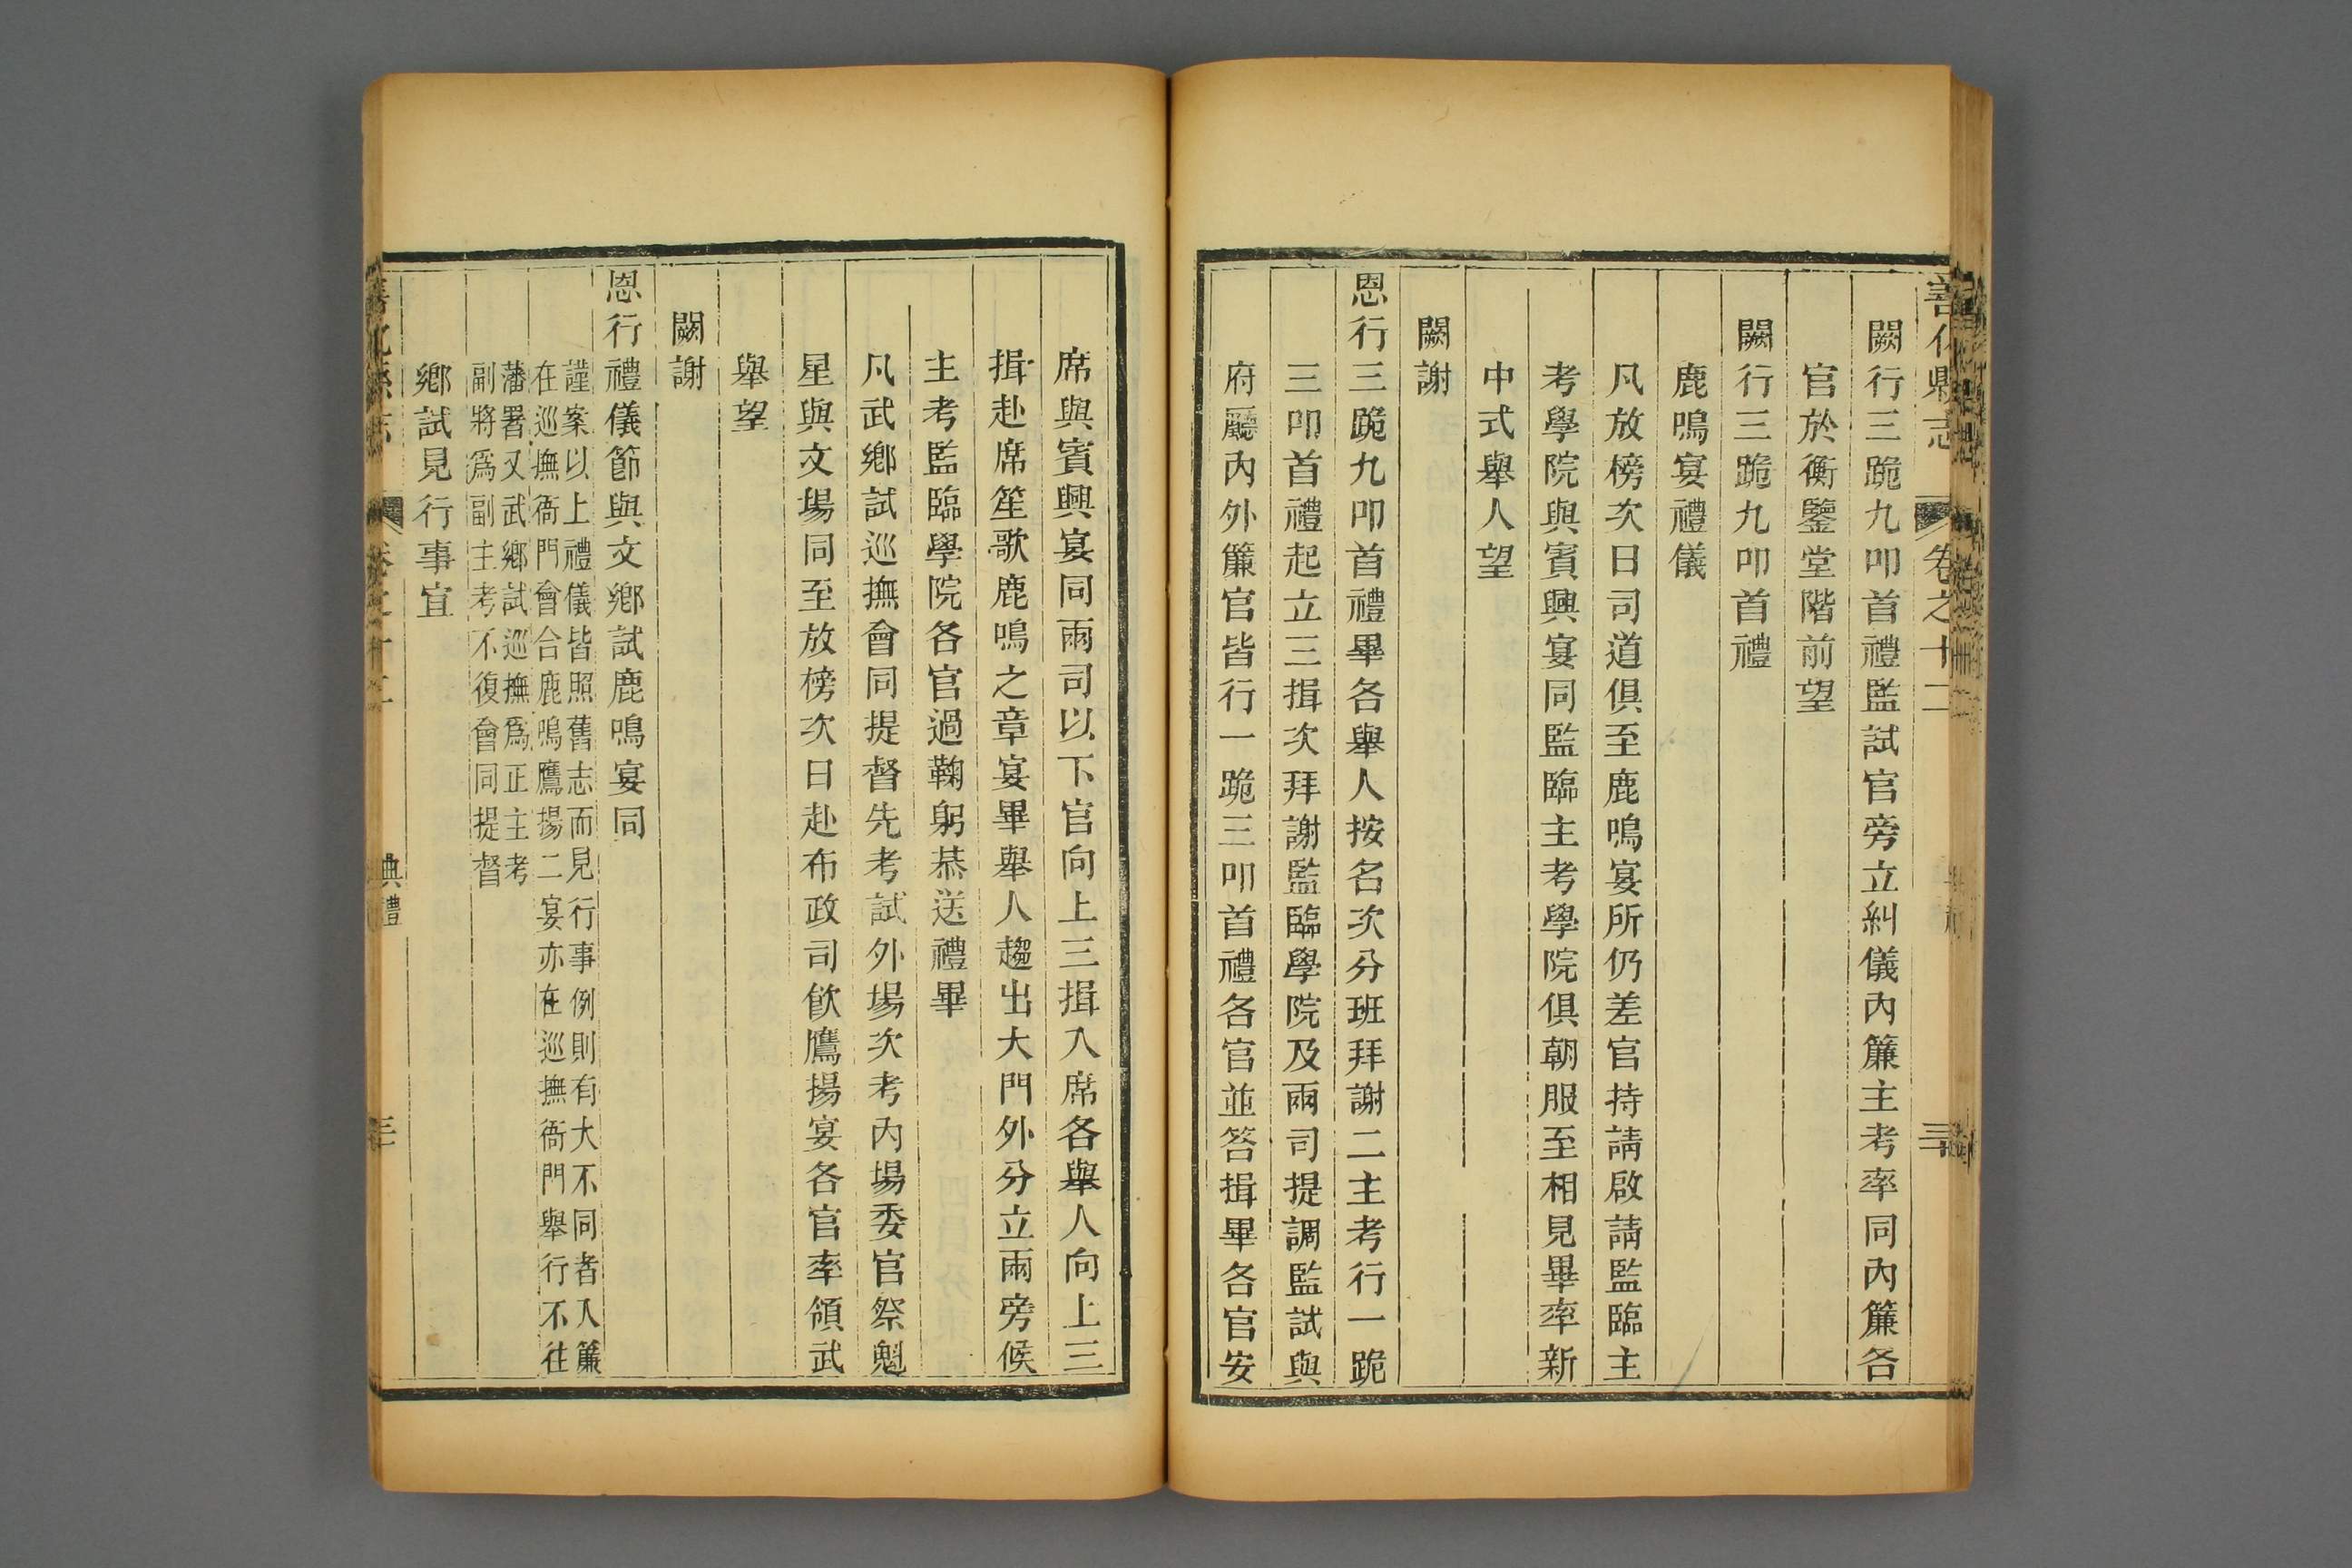 善化縣志
卷之十二
闕行三跪九叩首禮監試官旁立糾儀內簾主考率同內簾各
官於衡鑒堂階前望
闕行三跪九叩首禮
鹿鳴宴禮儀
凡放榜次日司道俱至鹿鳴宴所仍差官持請啟請監臨主
考學院與賓興宴同監臨主考學院俱朝服至相見畢率新
中式舉人望
闕謝
恩行三跪九叩首禮畢各舉人按名次分班拜謝二主考行一跪
三叩首禮起立三揖次拜謝監臨學院及兩司提調監試與
府廳內外簾官皆行一跪三叩首禮各官並答揖畢各官安
席與賓興宴同兩司以下官向上三揖入席各舉人向上三
揖赴席笙歌鹿鳴之章宴畢舉人趨出大門外分立兩旁候
主考監臨學院各官過鞠躬恭送禮畢
凡武鄉試巡撫會同提督先考試外場次考內場委官祭魁
星與文場同至放榜次日赴布政司飲鷹揚宴各官率領武
舉望
闕謝
恩行禮儀節與文鄉試鹿鳴宴同
謹案以上禮儀皆照舊志而見行事例則有大不同者入簾
在巡撫衙門會合鹿鳴鷹揚二宴亦在巡撫衙門舉行不往
藩署又武鄉試巡撫爲正主考
副將爲副主考不復會同提督
鄉試見行事宜
典禮